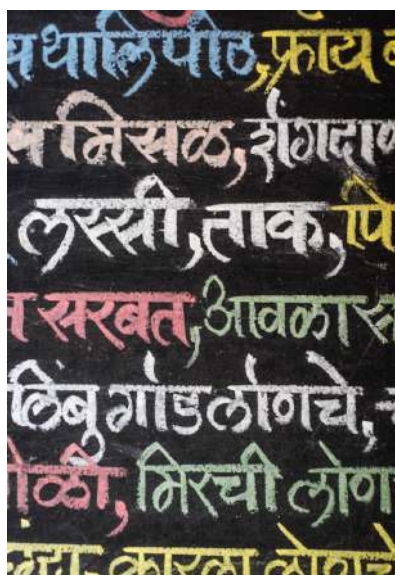 थालिपीठ, फ्राय
मिसळ, शेंगदाण
लस्सी, ताक, पि
सरबत, आवळा स
लिंबु गोड लोणचे,
ोळी, मिरची लोण
कारला लोणचे